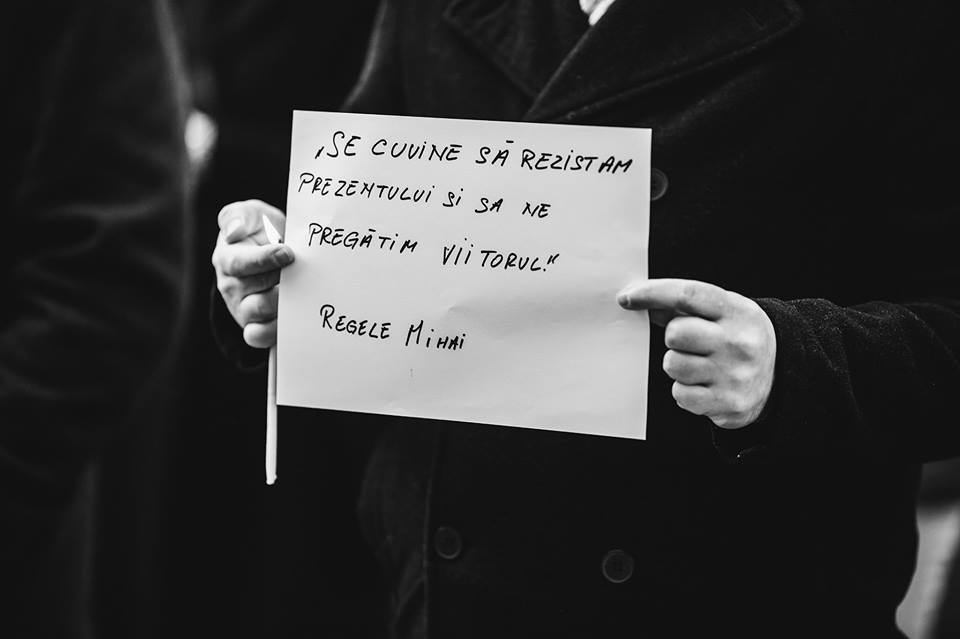 „SE CUVINE SĂ REZISTAM
PREZENTULUI SI SA NE
PREGĂTIM VIITORUL."
REGELE MIHAI